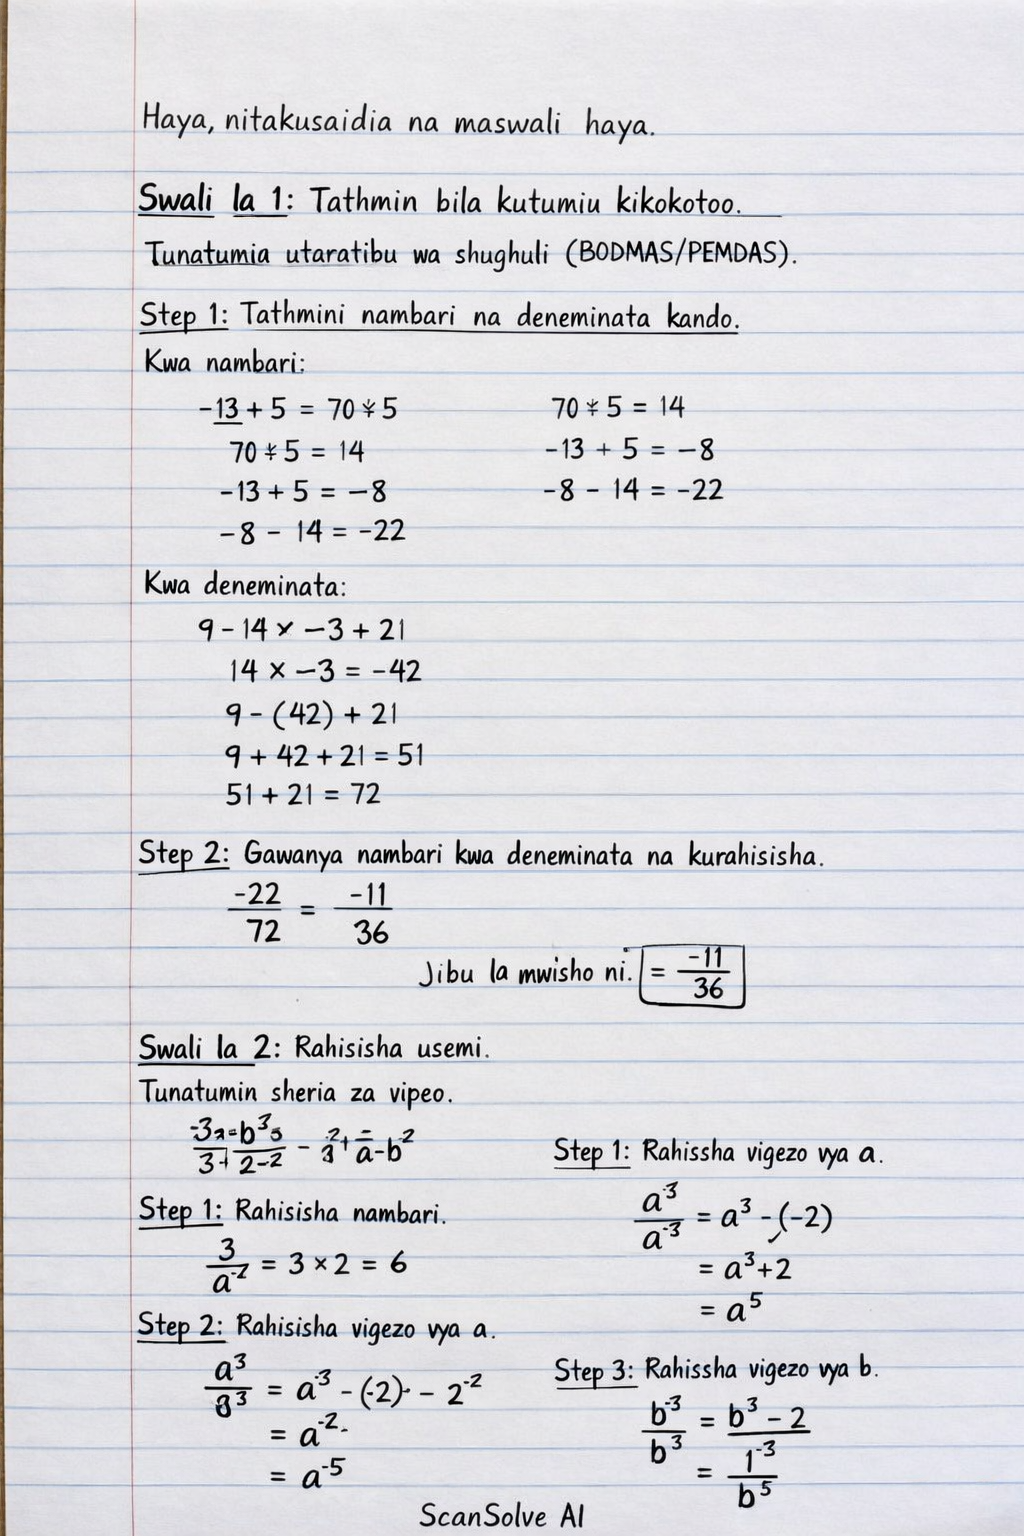 Haya, nitakusaidia na maswali haya.
Swali la 1: Tathmin bila kutumiu kikokotoo.
Tunatumia utaratibu wa shughuli (BODMAS/PEMDAS).
Step 1: Tathmini nambari na deneminata kando.
Kwa nambari:
-13 + 5 = 70 ÷ 5
70 ÷ 5 = 14
-13 + 5 = -8
-8 - 14 = -22
70 ÷ 5 = 14
-13 + 5 = -8
-8 - 14 = -22
Kwa deneminata:
9 - 14 × -3 + 21
14 × -3 = -42
9 - (42) + 21
9 + 42 + 21 = 51
51 + 21 = 72
Step 2: Gawanya nambari kwa deneminata na kurahisisha.
-22/72 = -11/36
Jibu la mwisho ni. = -11/36
Swali la 2: Rahisisha usemi.
Tunatumin sheria za vipeo.
Step 1: Rahisisha nambari.
3/a⁻² = 3 × 2 = 6
Step 2: Rahisisha vigezo vya a.
= a⁻⁵
Step 1: Rahissha vigezo vya a.
a⁻³/a⁻³ = a³ - (-2)
= a³+2
= a⁵
Step 3: Rahissha vigezo vya b.
b⁻³/b³ = b³ - 2
= 1⁻³/b⁵
ScanSolve AI